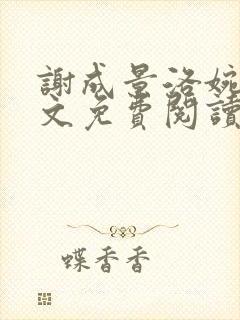 謝成景洛婉
文免費閱讀
蝶香香